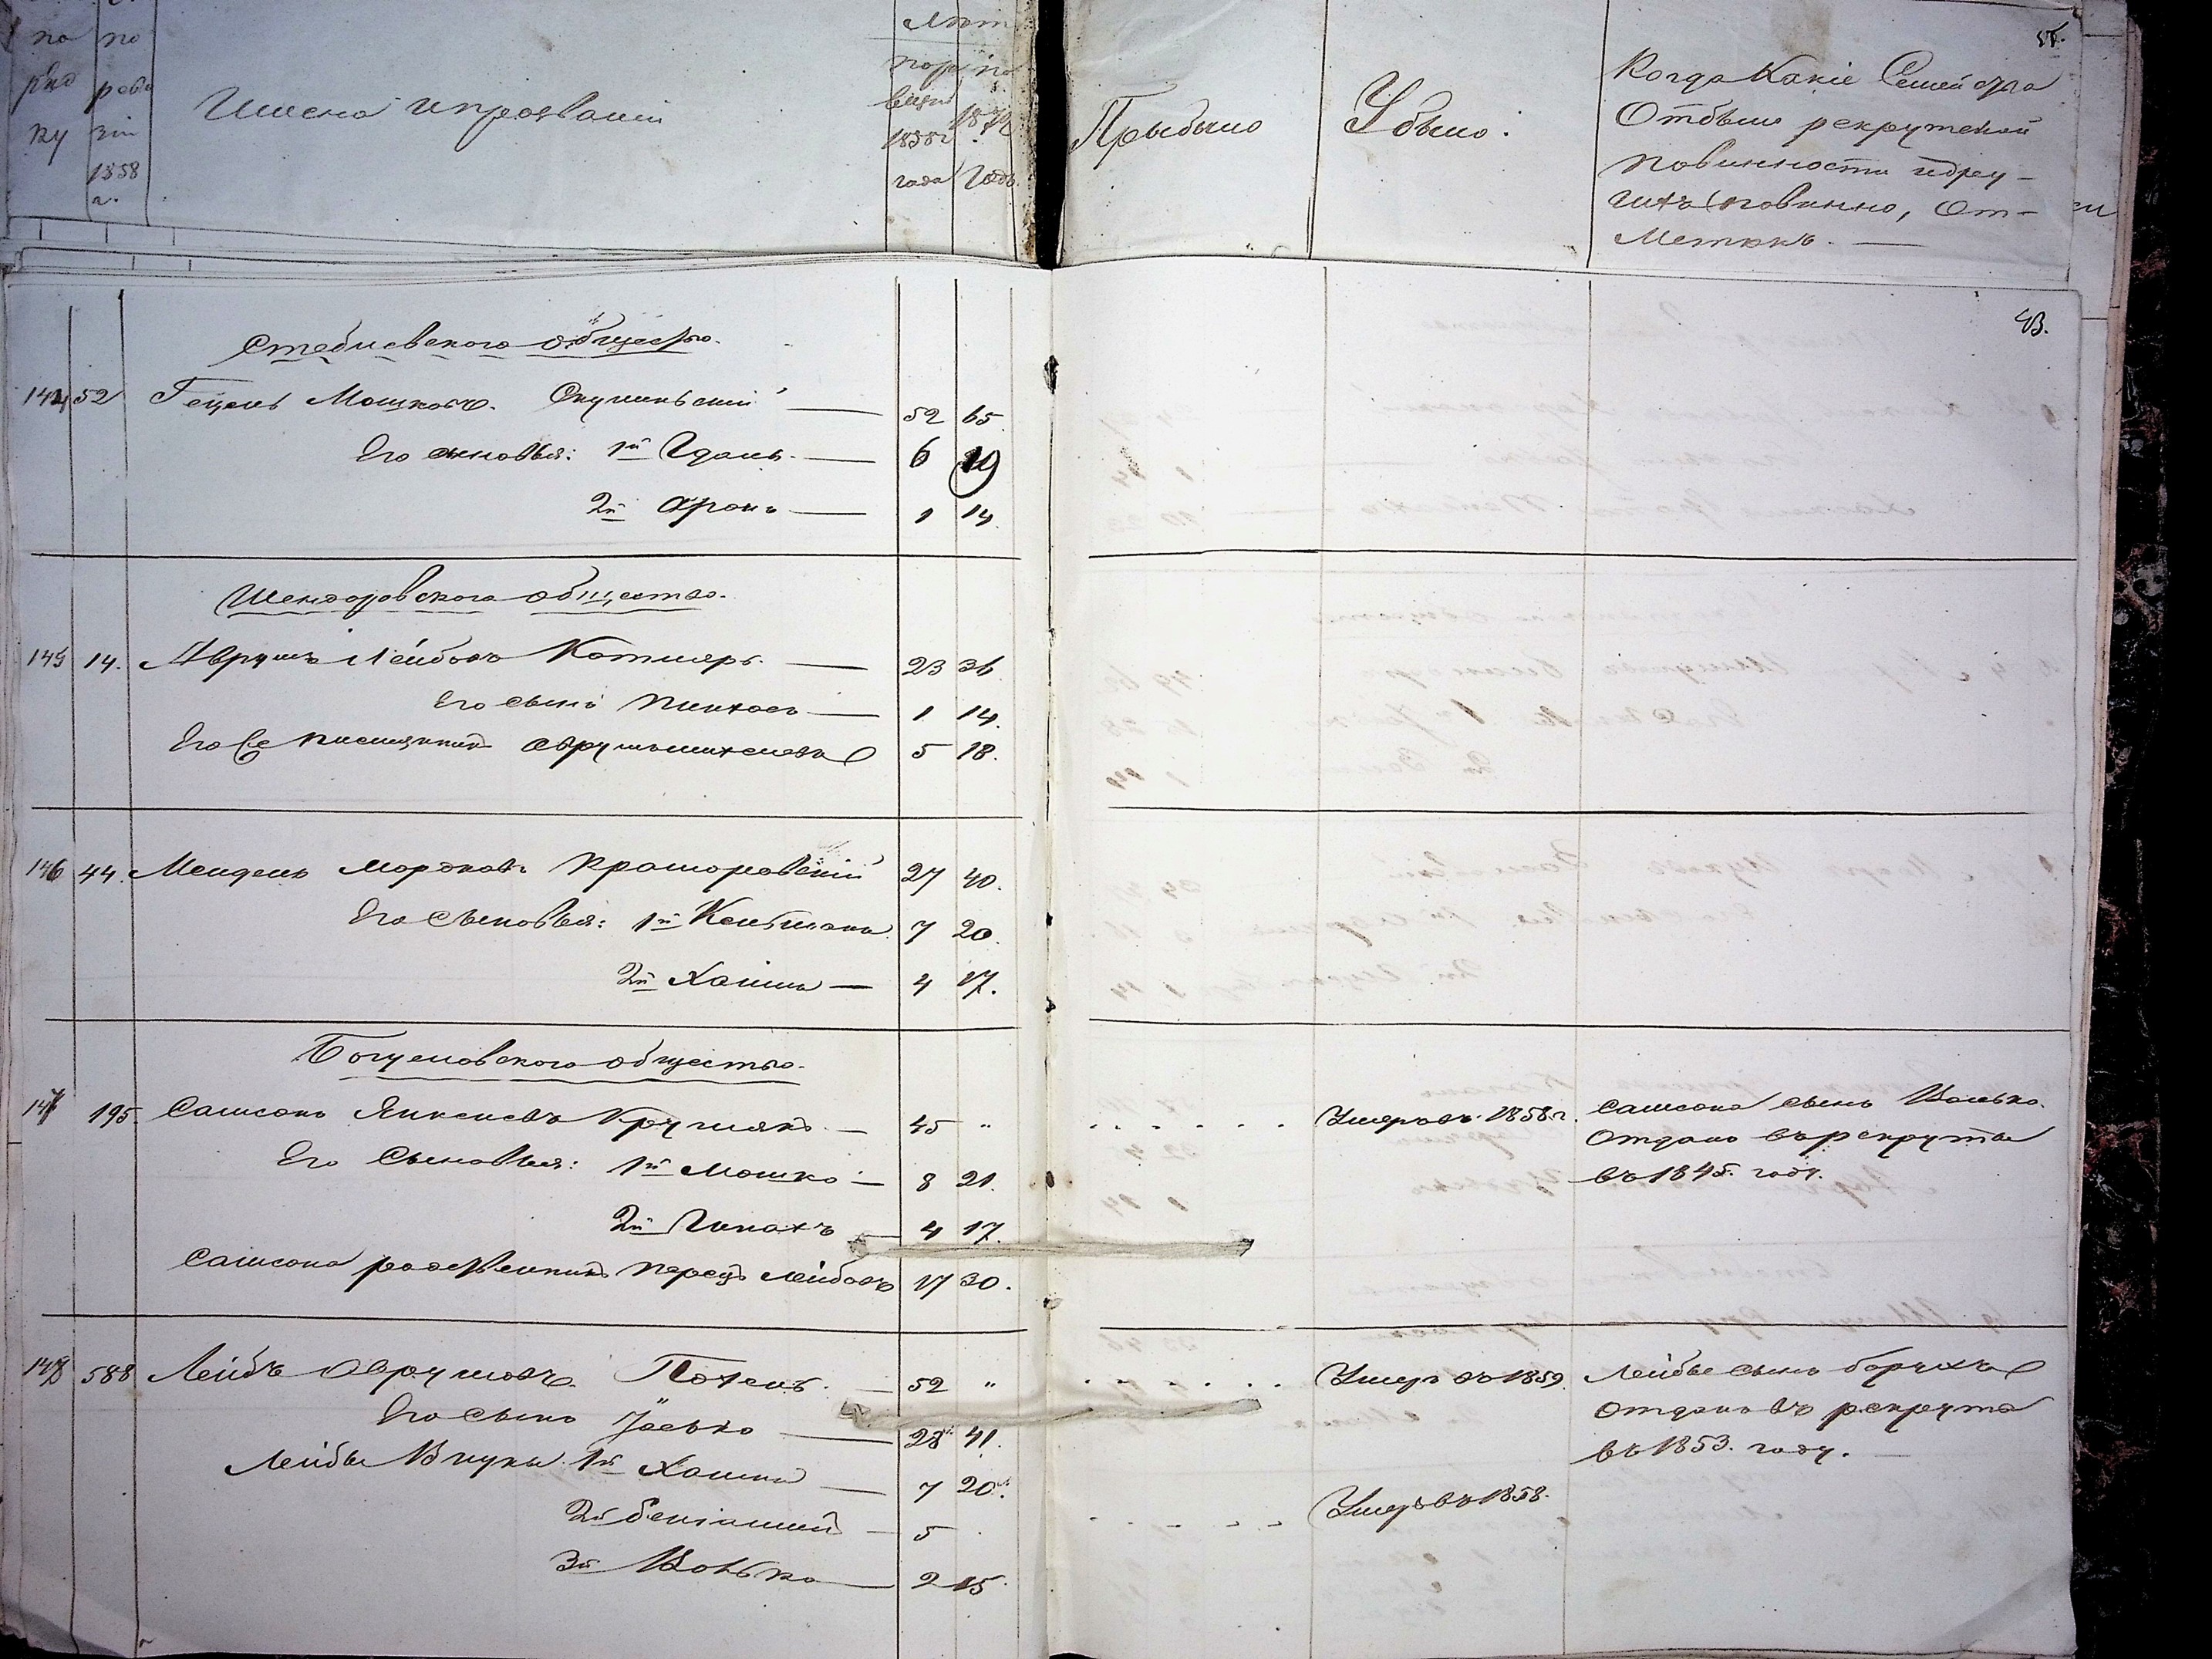 по
ряд
ку
по
реви
зіи
1858
г.
Имена и прозваніи
Лѣт
по ре
визіи
1858
года
по
1872
Годъ
Прыбыло
Убыло:
Когда Какіе Семейства
Отбыли рекрутской
повинности и другихъ повинно, От-
Метокъ. —
43.
Стеблевского общества.
144 52 Гецель Мошковъ. — 52 65.
Его сыновья: 1й Гдаль. — 6 19
2й Аронъ — 1 14.
общества.
145 14. Аврумъ Лейбовъ Котляръ. — 23 36
Его сынъ Пинхасъ — 1 14.
Его племянникъ 5 18.
146 44. Мендель Мордковъ 27 40.
Его Сыновья: 1й Кельманъ 7 20.
2й Хаимъ — 4 17.
Богуславского общества.
147 195. Самсонъ Янкелевъ Кругликъ. — 45 " . . . . . . Умеръ въ 1858 г. Самсона сынъ Волько.
Отданъ въ рекруты
въ 1845. году.
Его Сыновья: 1й Мошко — 8 21.
2й — 4 17.
Самсона родственникъ Перецъ Лейбовъ 17 30.
148 588 Лейбъ Аврумовъ — 52 " . . . . . . Умеръ въ 1859. Лейбы сынъ Борухъ
Отданъ въ рекрута
въ 1853. году. —
Его сынъ Іосько — 28 41.
Лейбы Внуки 1й Хаимъ — 7 20.
2й Беніаминъ — 5 . . . . . Умеръ въ 1858.
3й Волько — 2 15.